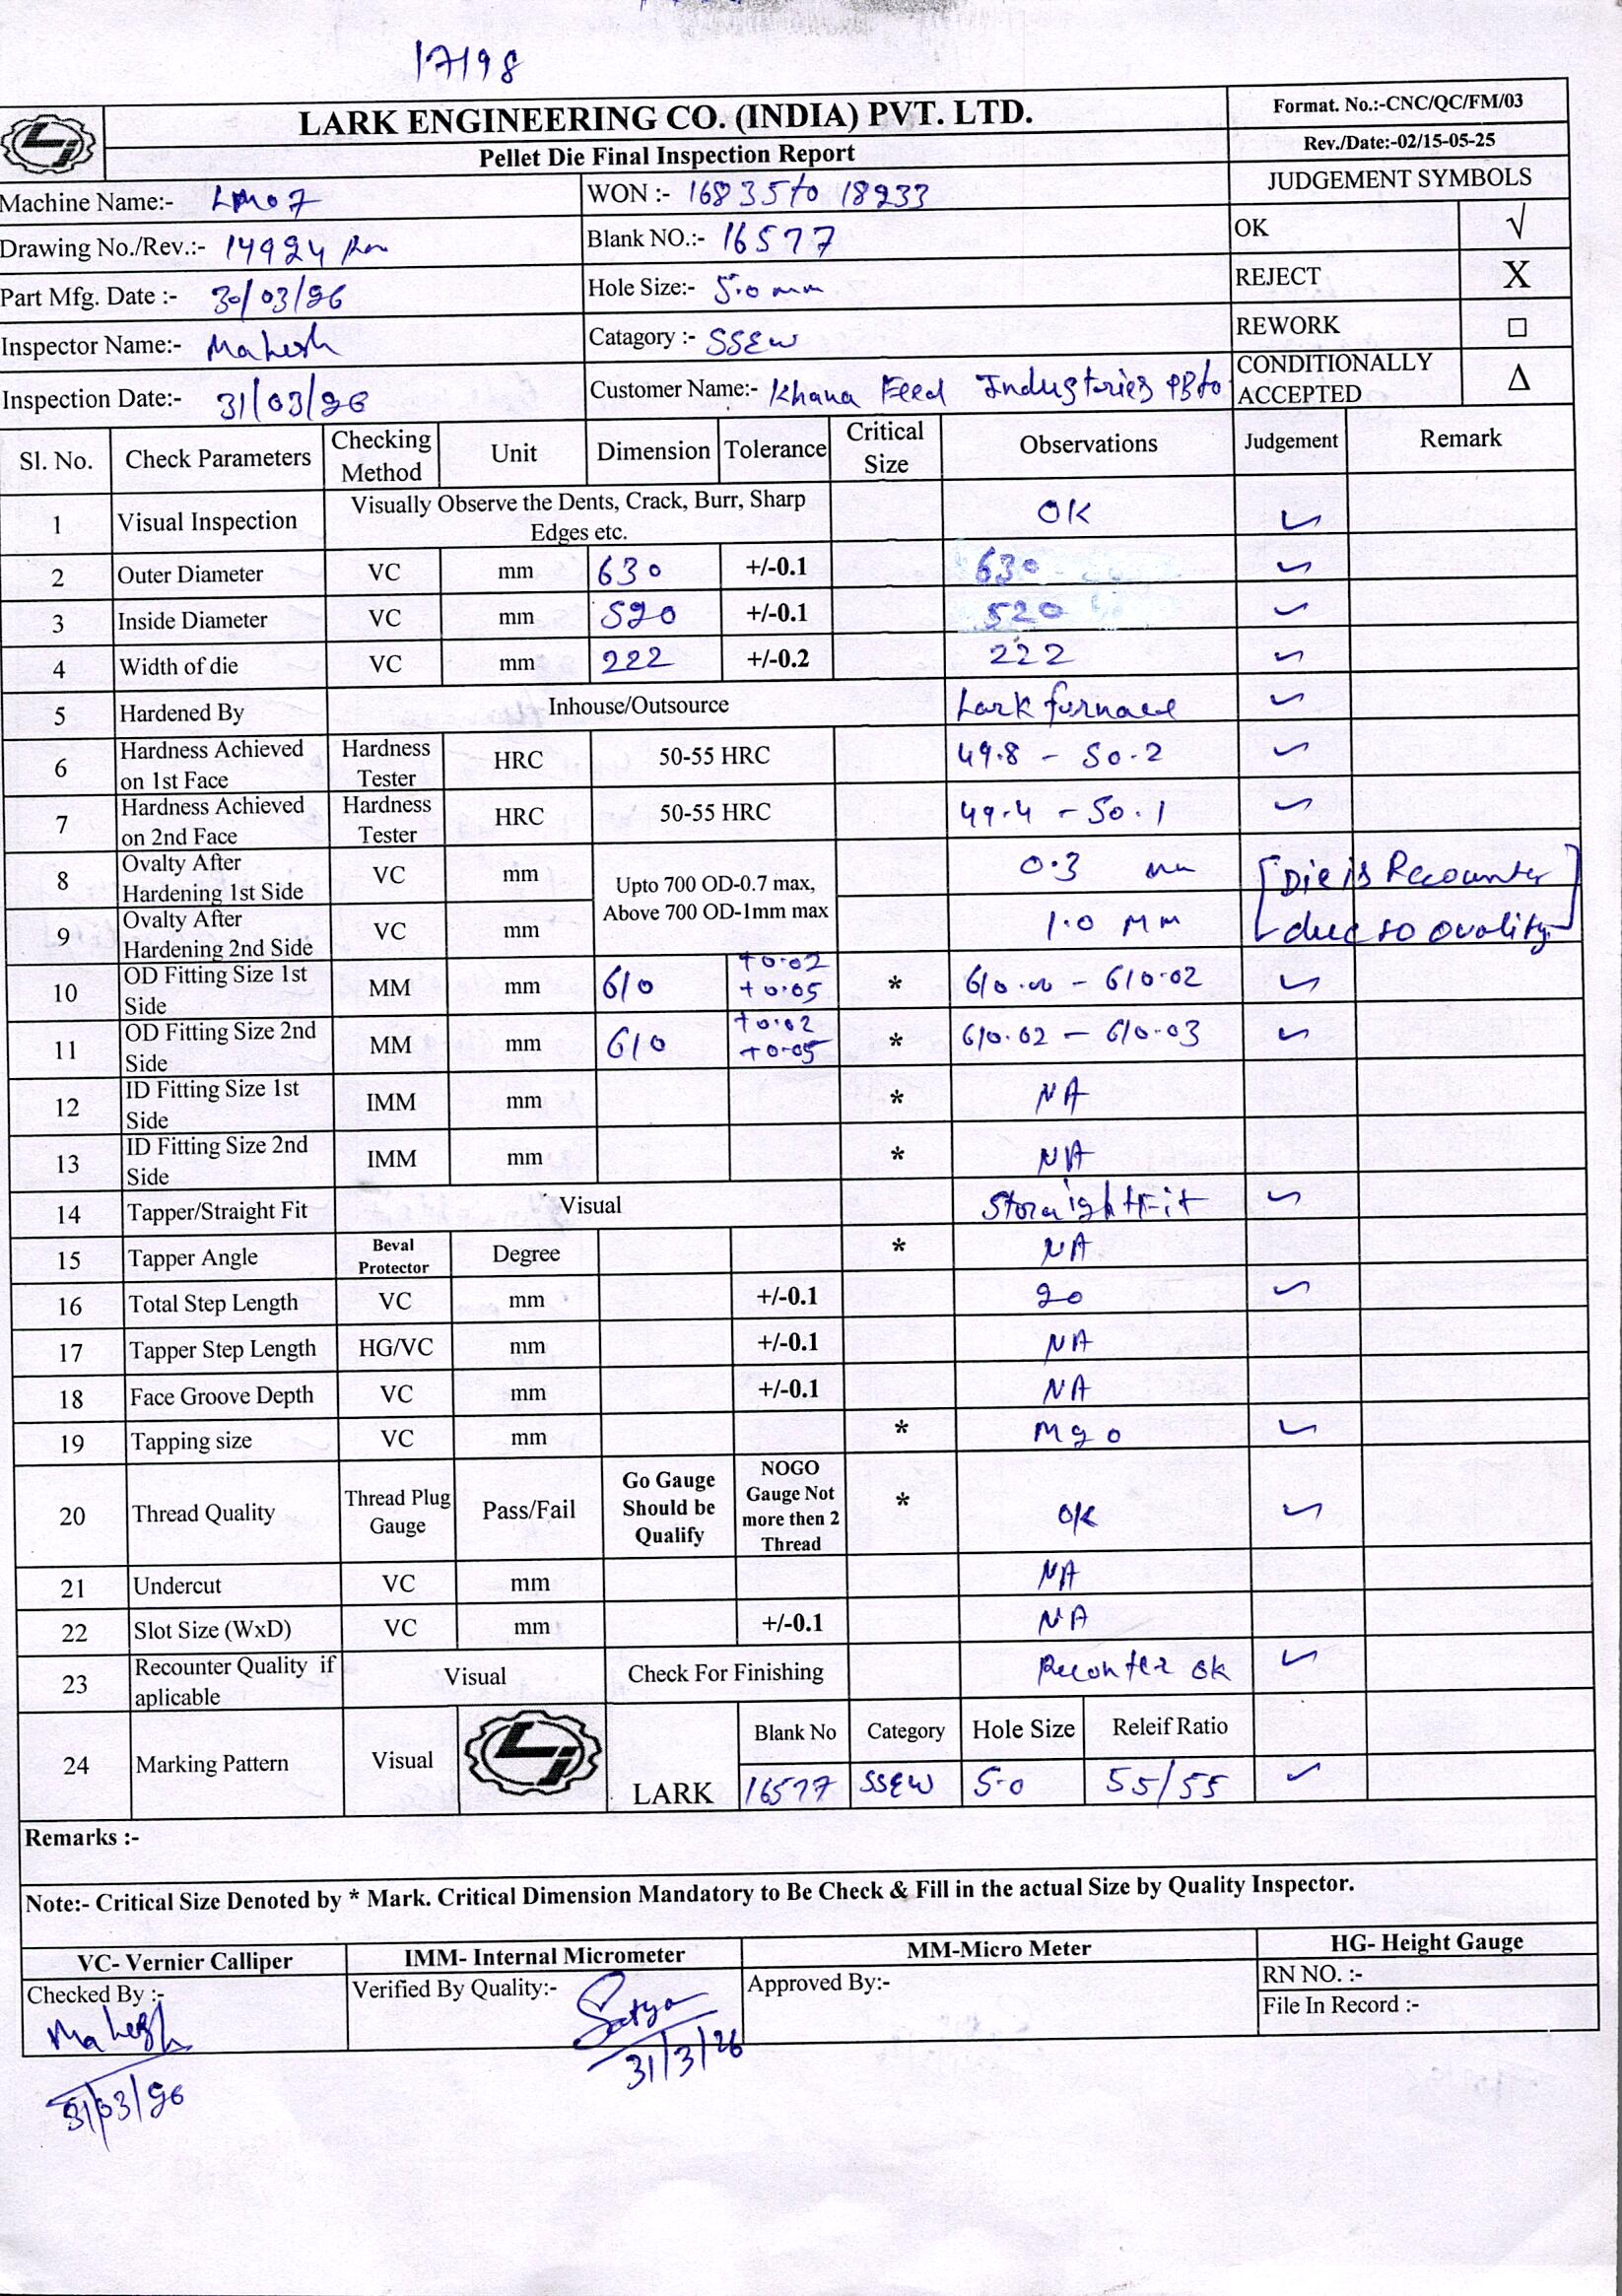 17198
LARK ENGINEERING CO. (INDIA) PVT. LTD.
Format. No.:-CNC/QC/FM/03
Pellet Die Final Inspection Report
Rev./Date:-02/15-05-25
Machine Name:- LM07
WON :- 16835 to 18233
JUDGEMENT SYMBOLS
Drawing No./Rev.:- 14924
Blank NO.:- 16577
OK √
Part Mfg. Date :- 30/03/26
Hole Size:- 5.0 mm
REJECT X
Inspector Name:- Mahesh
Catagory :- SSEW
REWORK □
Inspection Date:- 31/03/26
Customer Name:- Khana Feed Industries
CONDITIONALLY ACCEPTED Δ
Sl. No. Check Parameters Checking Method Unit Dimension Tolerance Critical Size Observations Judgement Remark
1 Visual Inspection Visually Observe the Dents, Crack, Burr, Sharp Edges etc. OK ✓
2 Outer Diameter VC mm 630 +/-0.1 630 ✓
3 Inside Diameter VC mm 520 +/-0.1 520 ✓
4 Width of die VC mm 222 +/-0.2 222 ✓
5 Hardened By Inhouse/Outsource Lark furnace ✓
6 Hardness Achieved on 1st Face Hardness Tester HRC 50-55 HRC 49.8 - 50.2 ✓
7 Hardness Achieved on 2nd Face Hardness Tester HRC 50-55 HRC 49.4 - 50.1 ✓
8 Ovalty After Hardening 1st Side VC mm Upto 700 OD-0.7 max, Above 700 OD-1mm max 0.3 mm [Die is Recounter
9 Ovalty After Hardening 2nd Side VC mm 1.0 MM due to ovality]
10 OD Fitting Size 1st Side MM mm 610 +0.02 +0.05 * 610.00 - 610.02 ✓
11 OD Fitting Size 2nd Side MM mm 610 +0.02 +0.05 * 610.02 - 610.03 ✓
12 ID Fitting Size 1st Side IMM mm * NA
13 ID Fitting Size 2nd Side IMM mm * NA
14 Tapper/Straight Fit Visual Storaight Fit ✓
15 Tapper Angle Beval Protector Degree * NA
16 Total Step Length VC mm +/-0.1 20 ✓
17 Tapper Step Length HG/VC mm +/-0.1 NA
18 Face Groove Depth VC mm +/-0.1 NA
19 Tapping size VC mm * M20 ✓
20 Thread Quality Thread Plug Gauge Pass/Fail Go Gauge Should be Qualify NOGO Gauge Not more then 2 Thread * OK ✓
21 Undercut VC mm NA
22 Slot Size (WxD) VC mm +/-0.1 NA
23 Recounter Quality if aplicable Visual Check For Finishing Reconter ok ✓
24 Marking Pattern Visual LARK Blank No Category Hole Size Releif Ratio
16577 SSEW 5.0 55/55 ✓
Remarks :-
Note:- Critical Size Denoted by * Mark. Critical Dimension Mandatory to Be Check & Fill in the actual Size by Quality Inspector.
VC- Vernier Calliper IMM- Internal Micrometer MM-Micro Meter HG- Height Gauge
Checked By :- Mahesh
Verified By Quality:- Satya
Approved By:-
RN NO. :-
File In Record :-
31/03/26
31/3/26